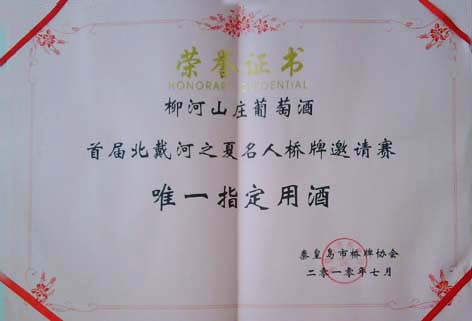 荣誉证书
HONORARY CREDENTIAL
柳河山庄葡萄酒
首届北戴河之夏名人桥牌邀请赛
唯一指定用酒
秦皇岛市桥牌协会
二零一零年七月